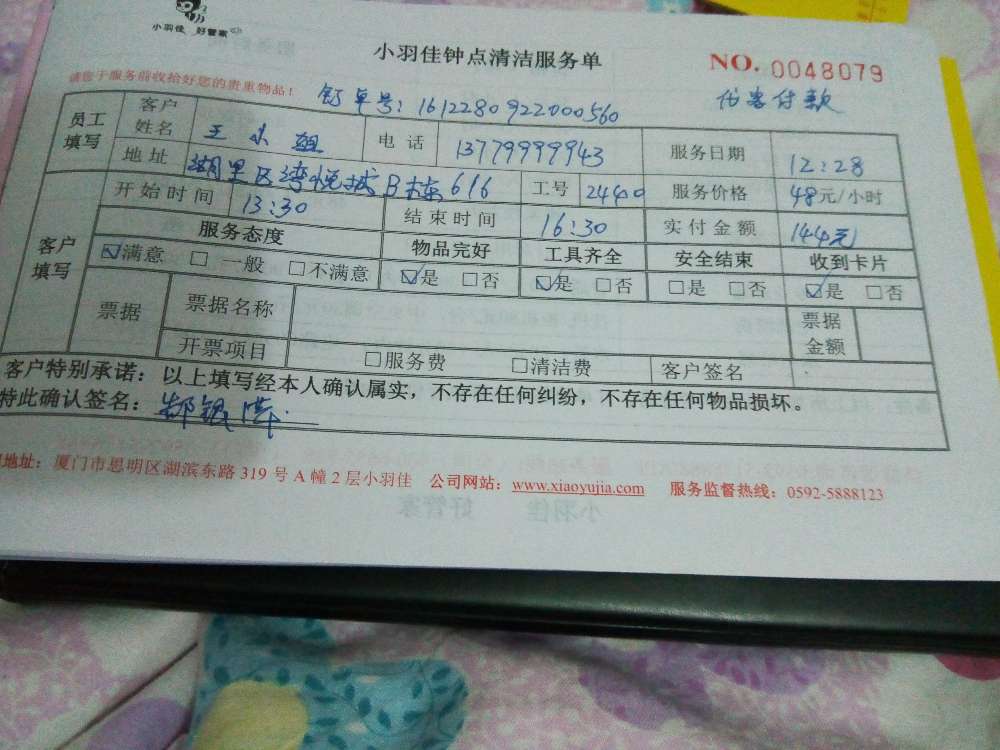 小羽佳 好管家
小羽佳钟点清洁服务单
NO. 0048079
请您于服务前收拾好您的贵重物品！
订单号：161228092200560
代客付款
员工填写 客户姓名 王小姐 电话 13779999943 服务日期 12:28
地址 湖里区湾悦城B栋616 工号 2440 服务价格 48元/小时
客户填写 开始时间 13:30 结束时间 16:30 实付金额 144元
服务态度 物品完好 工具齐全 安全结束 收到卡片
☑满意 □一般 □不满意 ☑是 □否 ☑是 □否 □是 □否 ☑是 □否
票据 票据名称 票据金额
开票项目 □服务费 □清洁费 客户签名
客户特别承诺：以上填写经本人确认属实，不存在任何纠纷，不存在任何物品损坏。
特此确认签名：
地址：厦门市思明区湖滨东路319号A幢2层小羽佳 公司网站：www.xiaoyujia.com 服务监督热线：0592-5888123